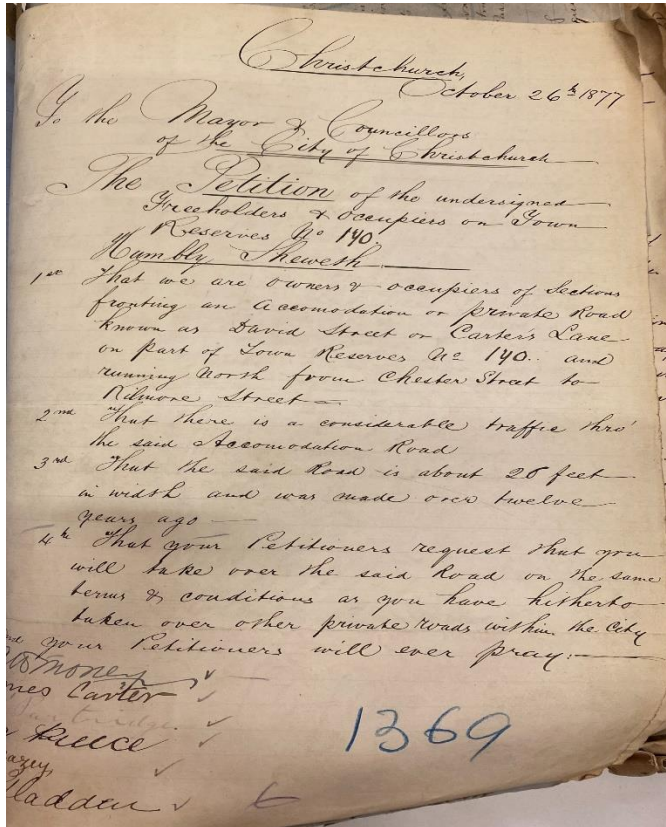 Christchurch,
October 26th 1877
To the Mayor & Councillors
of the City of Christchurch
The Petition of the undersigned
Freeholders & Occupiers on Town
Reserves No 140
Humbly Sheweth
1st That we are owners & occupiers of Sections
fronting an Accomodation or private Road
known as David Street or Carter's Lane
on part of Town Reserves No 140.. and
running North from Chester Street to
Kilmore Street
2nd That there is a considerable traffic thro'
the said Accomodation Road
3rd That the said Road is about 20 feet
in width and was made over twelve
years ago
4th That your Petitioners request that you
will take over the said Road on the same
terms & conditions as you have hitherto
taken over other private roads within the City
your Petitioners will ever pray:
Carter
1369
6